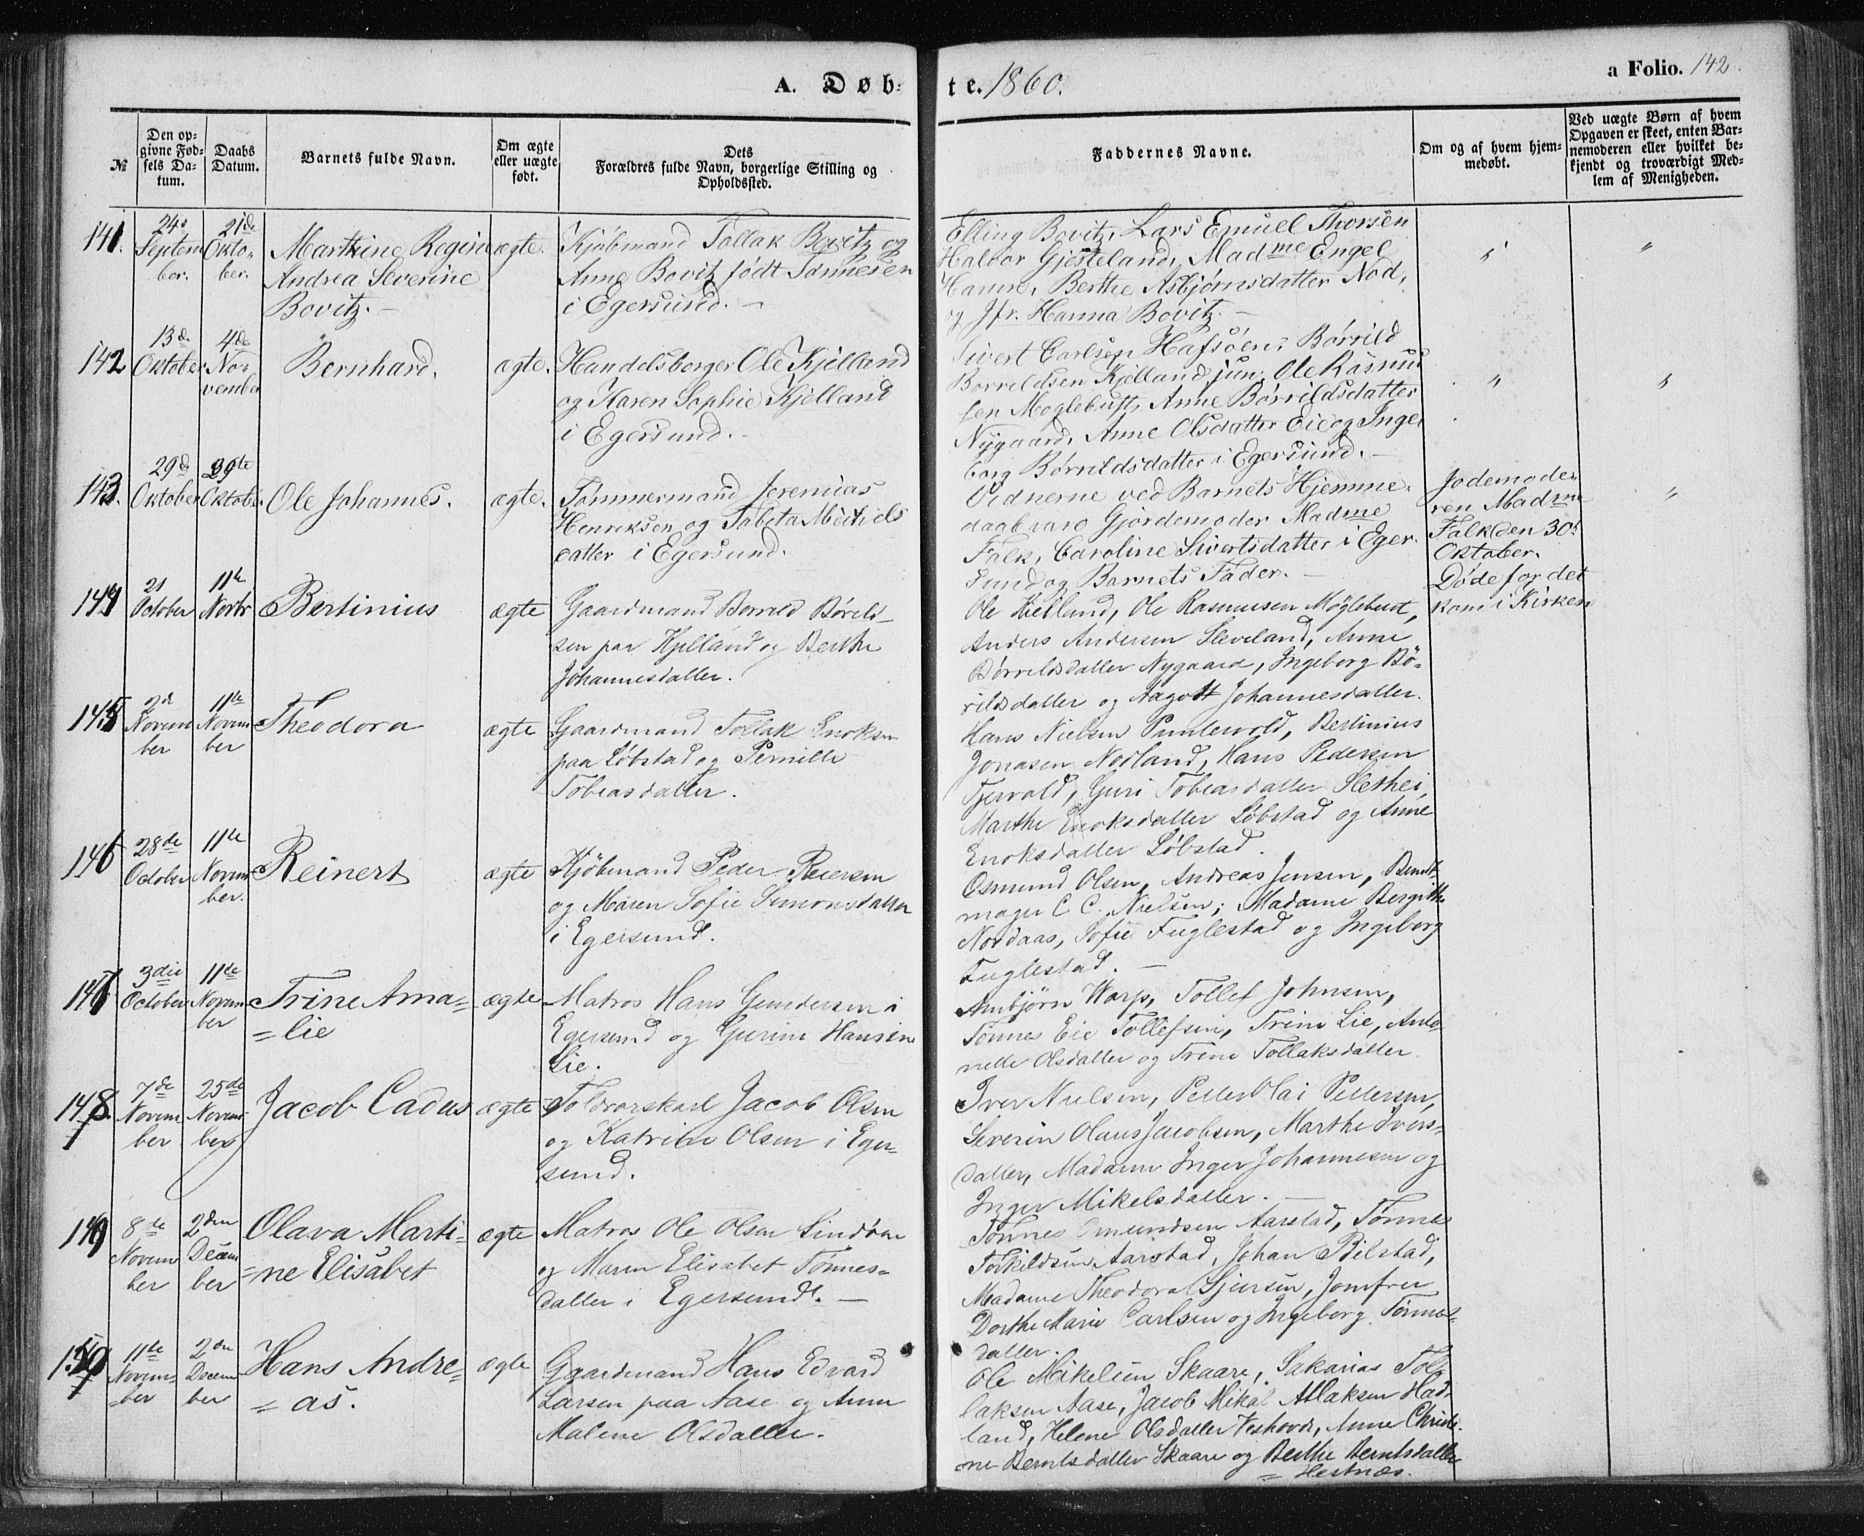 A. Døb-
te. 1860.
a Folio. 142.
№
Den op-
givne Fød-
sels Da-
tum.
Daabs
Datum.
Barnets fulde Navn.
Om ægte
eller uægte
født.
Dets
Forældres fulde Navn, borgerlige Stilling og
Opholdssted.
Faddernes Navne.
Om og af hvem hjem-
medøbt.
Ved uægte Børn af hvem
Opgaven er skeet, enten Bar-
nemoderen eller hvilket be-
kjendt og troværdigt Med-
lem af Menigheden.
141.
24de
Septem
ber.
21de
Okto-
ber.
Marthine Regine
Andrea Severine
Bovitz.-
ægte.
Kjøbmand Tollak Bovitz og
Anne Bovitz født Tønnesen
i Egersund. -
Elling Bovitz, Lars Emuel Thorsen
Halvor Gjesteland, Madme Engel
Hamre, Berthe Asbjørnsdatter Nod,
og Jfr. Hanna Bovitz. -
142
13de
Oktober
4de
No-
vember
Bernhard.
ægte.
Handelsborger Ole Kjelland
og Karen Sophie Kjelland
i Egersund. -
Sivert Carlsen Hafsøen, Børrild
Borrildsen Kjelland jun, Ole Rasmus
sen Moglebust, Anne Børrildsdatter
Nygaard, Anne Olsdatter Eie og Inge
borg Børrildsdatter i Egersund. -
143.
29de
Oktober
29te
Oktober.
Ole Johannes.
ægte.
Tømmermand Jeremias
Henriksen og Tabeta Michels
datter i Egersund.
Vidnerne ved Barnets Hjemme.
daab vare Gjordemoder Madme
Falk, Caroline Sivertsdatter i Eger.
sund og Barnets Fader. -
Jodemode-
ren Madme
Falk den 30te
Oktober.
Døde før det
kom i Kirken
144
21
October
11te
Novbr
Bertinius
ægte
Gaardmand Borrild Børild-
sen paa Kjelland og Berthe
Johannesdatter.
Ole Kielland, Ole Rasmusen Møglebust,
Anders Andersen Sleveland, Anne
Børrildsdatter Nygaard, Ingeborg Bø-
rildsdatter og Aagott Johannesdatter.
145
2d
Novem
ber
11te
Novem
ber
Theodora
ægte
Gaardmand Tollak Enoksen
paa Løbstad og Pernille
Tobiasdatter.
Hans Nielsen Puntervold, Bertinius
Jonasen Nodland, Hans Pedersen
Tjervold, Guri Tobiasdatter Slethei,
Marthe Enoksdatter Løbstad og Anne
Enoksdatter Løbstad.
146
28de
October
11te
Novem
ber.
Reinert
ægte
Kjøbmand Peder Reiersen
og Maren Sofie Simonsdatter
i Egersund.
Osmund Olsen, Andreas Jensen, Bundt
mager C C. Nielsen; Madame Bergithe
Nordaas, Sofie Fuglestad og Ingeborg
Fuglestad. -
147
3die
October
11te
Novem
ber
Trine Ama=
=lie
ægte
Matros Hans Gundersen i
Egersund og Gurine Hansen
Lie.
Ambjørn Warp, Tollef Johnsen,
Tønnes Eie Tollefsen, Trine Lie, Anto
nette Olsdatter og Trine Tollaksdatter.
148
7de
Novem
ber
25de
Novem
ber
Jacob Cadus
ægte
Toldvorskarl Jacob Olsen
og Katrine Olsen i Eger-
sund.
Iver Nielsen, Peder Olai Pedersen,
Severin Olaus Jacobsen, Marthe Ivers-
datter, Madame Inger Johannesen og
Inger Mikelsdatter. -
149
8de
Novem
ber
2den
Decem
ber
Olava Marti-
=ne Elisabet
ægte
Matros Ole Olsen Lindøen
og Maren Elisabet Tønnes-
datter i Egersund. -
Tønnes Omundsen Aarstad, Tønnes
Torkildsen Aarstad, Johan Bilstad,
Madame Theodora Sjursen, Jomfru
Dorthe Marie Carlsen og Ingeborg Tønnes-
datter.
150
11te
Novem-
=ber
2den
Decem
ber
Hans Andre=
=as.
ægte
Gaardmand Hans Edvard
Larsen paa Aase og Anne
Malene Olsdatter.
Ole Mikelsen Skaare, Sakarias Tol-
laksen Aase, Jacob Mikal Atlaksen Had-
land, Helene Olsdatter Veshovde, Anne Christi-
ne Berntsdatter Skaare og Berthe Berntsdatter
= Hestnæs.